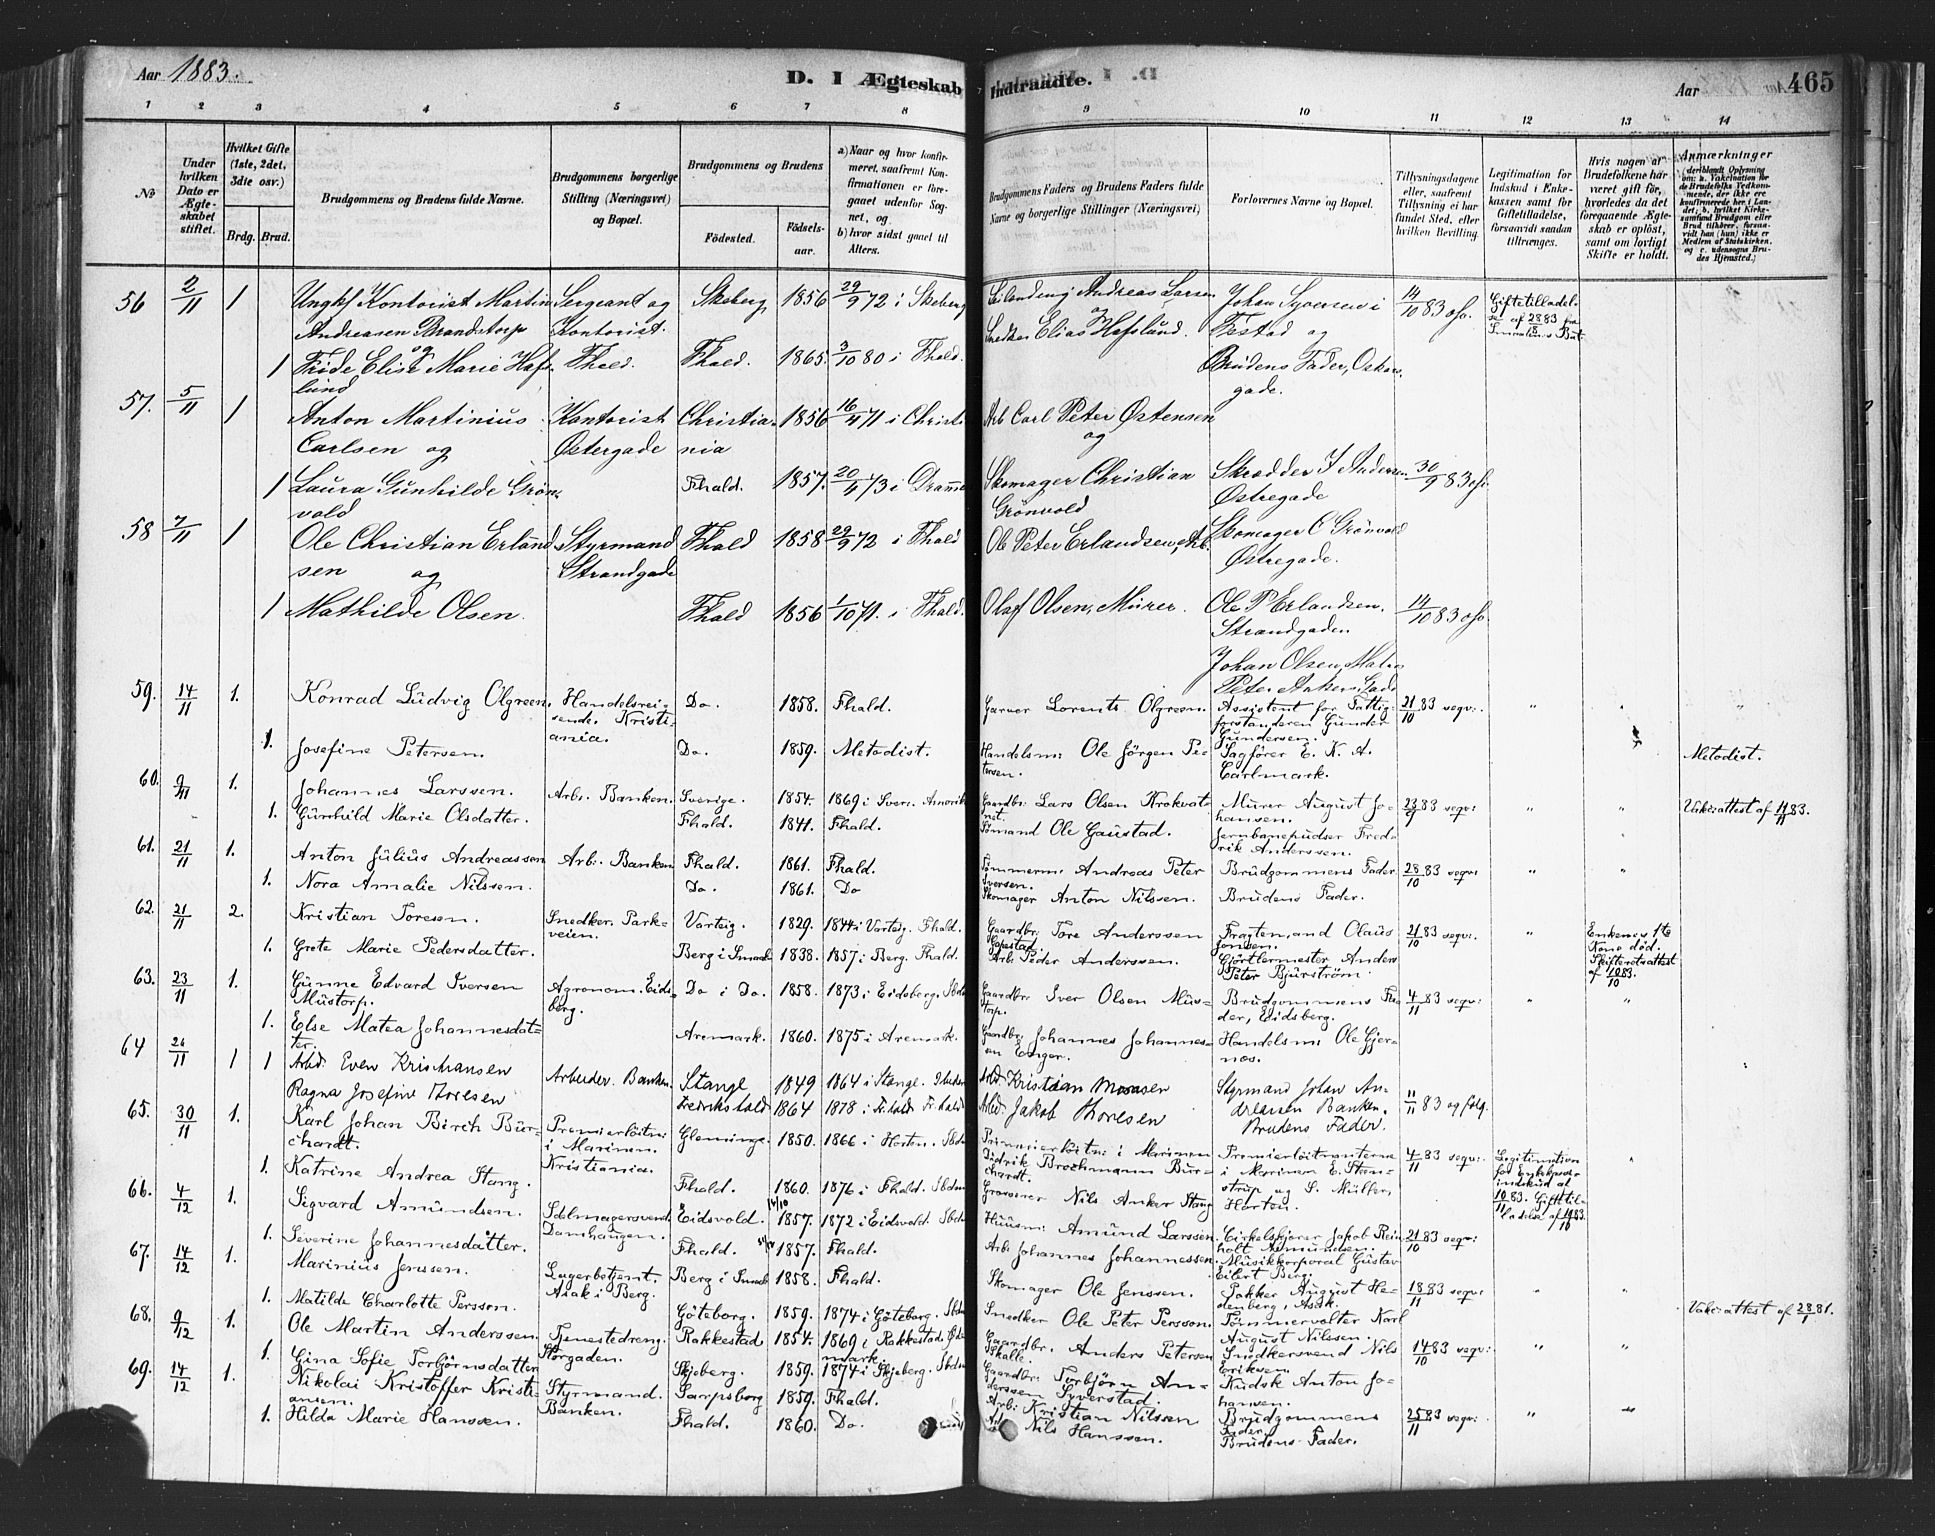 Aar 1883.
D. I Ægteskab Indtraadte.
Aar
465
1 2 3 4 5 6 7 8 9 10 11 12 13 14
No
Under hvilken Dato er Ægteskabet stiftet.
Hvilket Gifte (1ste, 2det, 3die osv.)
Brdg. Brud.
Brudgommens og Brudens fulde Navne.
Brudgommens borgerlige Stilling (Næringsvei) og Bopæl.
Brudgommens og Brudens
Fødested.
Fødselsaar.
a) Naar og hvor konfirmeret, saafremt Konfirmationen er foregaaet udenfor Sognet, og
b) hvor sidst gaaet til Alters.
Brudgommens Faders og Brudens Faders fulde Navne og borgerlige Stillinger (Næringsvei)
Forlovernes Navne og Bopæl.
Tillysningsdagene eller, saafremt Tillysning ei har fundet Sted, efter hvilken Bevilling.
Legitimation for Indskud i Enkekassen samt for Giftetilladelse, forsaavidt saadan tiltrænges.
Hvis nogen af Brudefolkene har været gift før, hvorledes da det foregaaende Ægteskab er opløst, samt om lovligt Skifte er holdt.
Anmærkninger
56 2/11 1 Ungkf Kontorist Martin Andreasen Brandstorp og Sergeant og Kontorist. Fhald. Skeberg 1856 29/9 72 i Skeberg Andreas Larsen og Johan Syversen i Festad og 14/10 83 ofv. Giftetilladelse af
1 Frøde Elise Marie Hafslund Fhald. 1865. 3/10 80 i Fhald. Snedker Elias Hafslund. Brudens Fader, Oskarsgade.
57. 5/11 1 Anton Martinius Carlsen og Kontorist Østergade Christiania 1856 16/4 71 i Christi Arb Carl Peter Østensen og
1 Laura Gunhilde Grønvold Fhald. 1857. 20/4 73 i Dramme Skomager Christian Grønvold Skrædder J Andersen Østregade 30/9 83 ofv.
Skomager C Grønvold Østregade.
58 7/11 1 Ole Christian Erlandsen og Styrmand Strandgade Fhald 1858 29/9 72 i Fhald Ole Peter Erlandsen, Arb.
1 Mathilde Olsen. Fhald 1856 1/10 71. i Fhald. Olaf Olsen, Murer. Ole P Erlandsen. Strandgaden 14/10 83 ofv.
Johan Olsen, Peter Ankers Gade
59. 14/11 1. Konrad Ludvig Olgreen. Handelsreisende. Kristiania. Do. 1858. Fhald. Garver Lorents Olgreen. Assistent for Fattigforstanderen Gunder Gundersen. 21/10 83 segv: " " "
1. Josefine Petersen. Do. 1859. Metodist. Handelsm: Ole Jørgen Petersen. Sagfører E. K. A. Carlmark. Metodist.
60. 9/11 1. Johannes Larssen. Arb. Banken. Sverige. 1854. 1869 i Sver. Gaardbr: Lars Olsen Murer August Johansen. 23/9 83 segv: " " Vak:attest af
1. Gunhild Marie Olsdatter. Fhald. 1841. Fhald. Sømand Ole Gaustad. Jernbanepudser Fredrik Anderssen.
61. 21/11 1. Anton Julius Andreassen Arb. Banken Fhald. 1861. Fhald. Tømmerm: Andreas Peter Iversen. Brudgommens Fader. 28/10 83 segv: " "
1. Nora Amalie Nilssen. Do. 1861. Do Skomager Anton Nilssen. Brudens Fader.
62. 21/11 2. Kristian Toresen. Snedker. Parkveien. Varteig. 1829. 1844 i Varteig. Fhald. Gaardbr: Tore Anderssen Olaus 21/10 83 segv: " Enkemd. 1te Kone død. Skifteretsattest af 10/10 83.
1. Grete Marie Pedersdatter. Berg i Smaal 1838. 1857 i Berg. Fhald. Arb. Peder Anderssen. Gjørtlermester Anders Peter Bjurstrøm.
63. 23/11 1. Gunne Edvard Iversen Mustorp. Agronom. Eidsberg. Do i Do. 1858. 1873 i Eidsberg. Sbds Gaardbr: Iver Olsen Mustorp. Brudgommens Fader, Eidsberg. 4/11 83 segv: " "
1. Else Matea Johannesdatter. Aremark. 1860. 1875 i Aremark. Gaardbr: Johannes Johannessen Enger. Handelsm: Ole Gjernæs.
64 26/11 1 1 Arbd. Even Kristiansen Arbeider. Banken. Stange 1849 1864 i Stange. Arbd. Kristian Monsen Styrmand Johan Andreasen Banken. 11/11 83 og følg.
Ragna Josefine Thoresen Fredrikshald 1864 1878 i Fr.hald Fr.hald Arbd. Jakob Thoresen Brudens Fader.
65. 30/11 1. Karl Johan Birch Burchardt. Premierløitn: i Marinen. Kristiania. Glemminge. 1850. 1866 i Horten. Sbds Premierløitn: i Marinen Didrik Brochmann Burchardt. Premierløitnanterne i Marinen E. Steenstrup og S. Müller, Horten. 4/11 83 segv: Legitimation for Enkekasseindskud af 10/11 83. Giftetilladelse af "
1. Katrine Andrea Stang. Fhald. 1860. 1876 i Fhald. Sbds Grosserer Nils Anker Stang
66. 4/12 1. Sigvard Amundsen. Sadelmagersvend. Damhaugen. Eidsvold. 1857. 1872 i Eidsvold. Sbds Husm: Amund Larssen. Cirkelskjører Jakob Reinholt Asmundsen. 21/10 83 segv:
1. Severine Johannesdatter. Fhald. 1857. Fhald. Arb. Johannes Johannessen. Musikkorporal Gustav Eilert Berg.
67. 14/12 1. Marinius Jenssen. Lagerbetjent. Asak i Berg. Berg i Smaal 1858. Fhald. Skomager Ole Jenssen. Pakker August Hedenberg, Asak. 18/11 83 segv: " "
1. Matilde Charlotte Persson. Göteborg. 1859. 1874 i Göteborg. Sbds Snedker Ole Peter Persson. Tømmervolter Karl August Nilssen. Vak:attest af 28/1 81.
68. 9/12 1. Ole Martin Anderssen. Tjenestedreng. Storgaden. Rakkestad 1854. 1869 i Rakkestad. Gaardbr. Anders Petersen Skalle. Snedkersvend Nils Eriksen. 14/10 83 segv: " "
1. Gina Sofie Torbjørnsdatter Skjeberg. 1859. 1874 i Skjeberg. Sbds Gaardbr: Torbjørn Anderssen Syverstad. Kudsk Anton Johansen.
69. 14/12 1. Nikolai Kristoffer Kristiansen. Styrmand. Banken. Sarpsborg 1859. Fhald. Arb: Kristian Nilssen Brudgommens Fader. 25/11 83 segv: " "
1. Hilda Marie Hanssen. Fhald. 1860. Do. Arb Nils Hanssen. Brudens Fader.